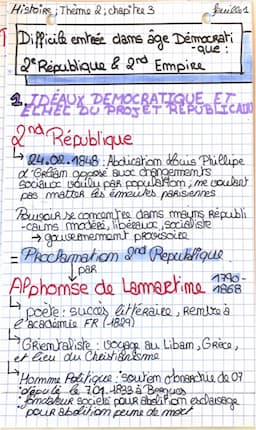 Histoire ; Thème 2 ; chapitre 3 feuille 1
Difficile entrée dans âge Démocrati
-que :
2e République & 2nd Empire
1. IDÉAUX DEMOCRATIQUE ET
ECHEC DU PROJET REPUBLICAIN
2nd République
↳ 24.02.1848 : Abdication Louis Philippe
d'Orléan opposé aux changements
sociaux voulu par population, ne voulant
pas matter les émeutes parisiennes
Pouvoir se concentre dans mains républi
-cains modéré, libéraux, socialiste
→ gouvernement provisoire
= Proclamation 2nd République
par
Alphonse de Lamartine 1790-
1868
↳ poète : succès littéraire, rentre à
l'académie FR (1829)
↳ Orientaliste : voyage au Liban, Grèce,
et lieu du Christianisme
↳ Homme Politique : soutien monarchie de 07
député le 7.01.1833 à Bergues
fondateur société pour abolition esclavage
pour abolition peine de mort